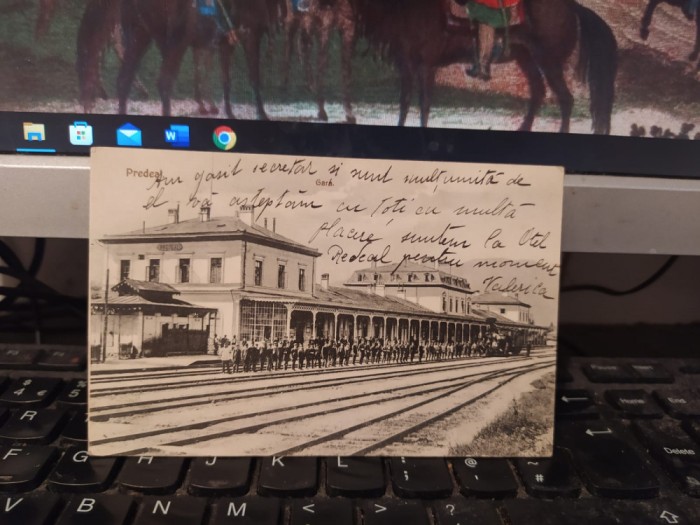 Predeal
Gara.
Am găsit secretar si sunt mulțumită de
el vă asteptăm cu toți cu multă
placere, suntem la Otel
Predeal pentru moment
PREDEAL
W
$
4
5
R T
F G H J K L ; @ #
V B N M < > ?
End
Delete